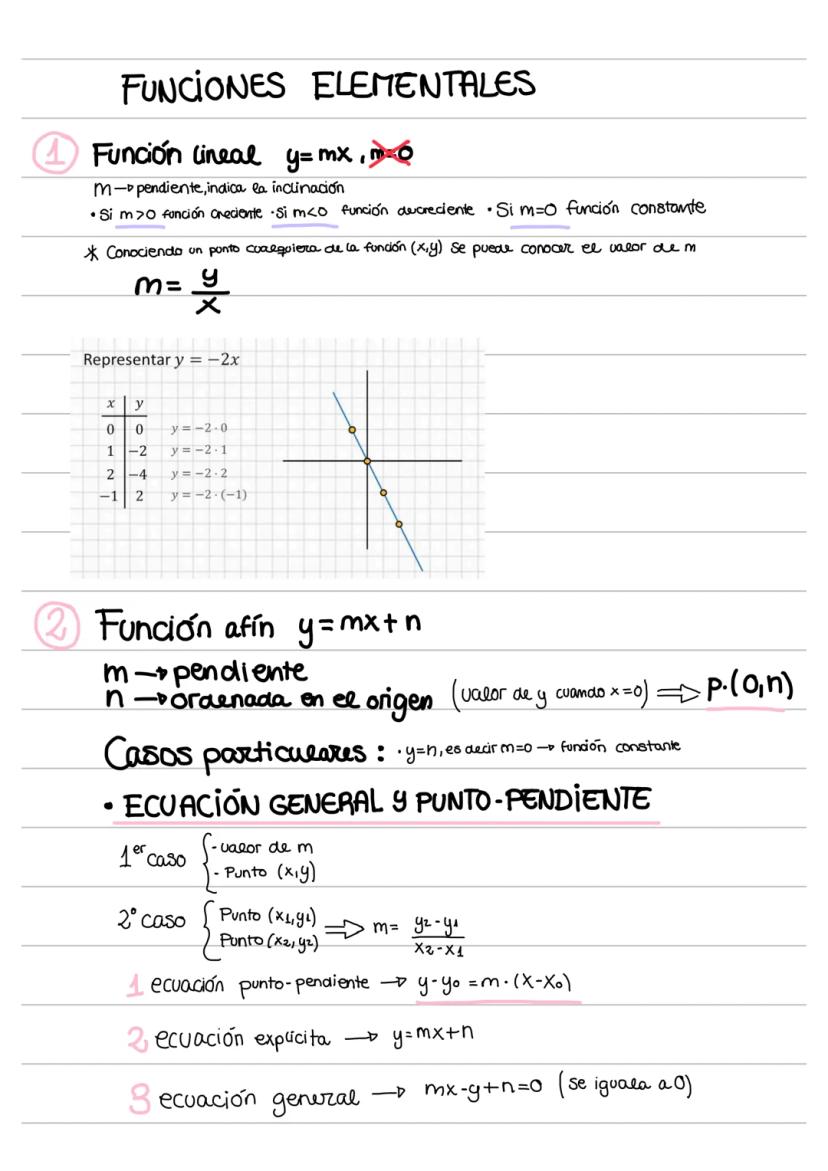 FUNCIONES ELEMENTALES
1 Función lineal y=mx, m=0
m→pendiente, indica la inclinación
• Si m>0 función creciente • Si m<0 función decreciente • Si m=0 función constante
* Conociendo un punto cualquiera de la función (x,y) se puede conocer el valor de m
m= y/x
Representar y = −2x
x | y
0 | 0 y = −2 · 0
1 | −2 y = −2 · 1
2 | −4 y = −2 · 2
−1 | 2 y = −2 · (−1)
2 Función afín y=mx+n
m→pendiente
n→ordenada en el origen (valor de y cuando x=0) ⇒ p.(0,n)
Casos particulares: • y=n, es decir m=0 → función constante
• ECUACIÓN GENERAL Y PUNTO-PENDIENTE
1er caso { - valor de m
- Punto (x,y)
2º caso { Punto (x1,y1)
Punto (x2,y2) ⇒ m= y2-y1/x2-x1
1 ecuación punto-pendiente → y-y0 =m·(x-x0)
2 ecuación explícita → y=mx+n
3 ecuación general → mx-y+n=0 (se iguala a 0)